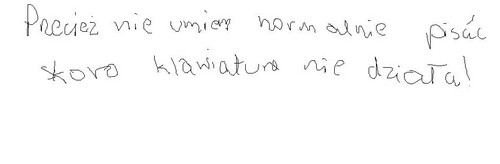 Przcież nie umiem normalnie pisać
skoro klawiatura nie działa!